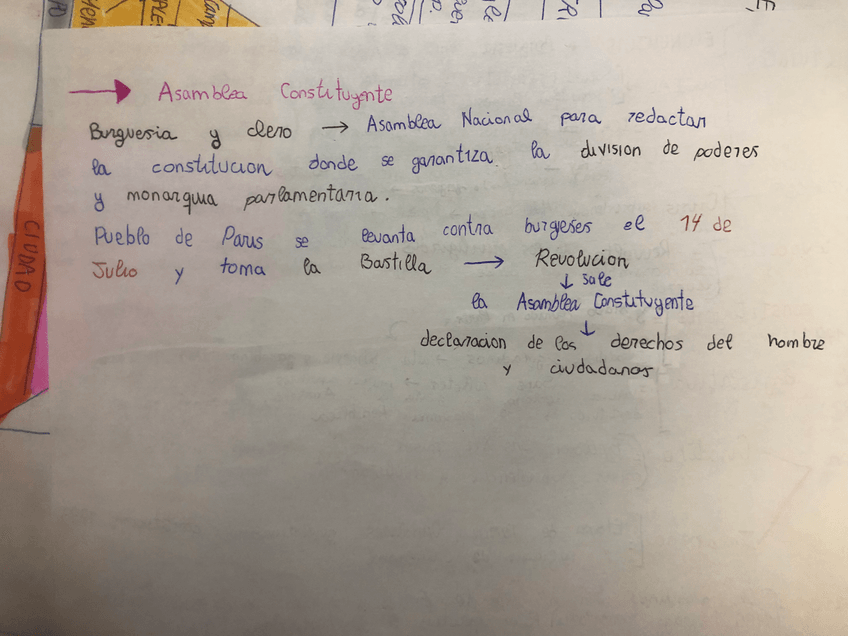 → Asamblea Constituyente
Burguesia y clero → Asamblea Nacional para redactar
la constitucion donde se garantiza la division de poderes
y monarquia parlamentaria.
Pueblo de Paris se levanta contra burgeses el 14 de
Julio y toma la Bastilla → Revolucion
↓ sale
la Asamblea Constituyente
↓
declaracion de los derechos del hombre
y ciudadanos
CIUDAD